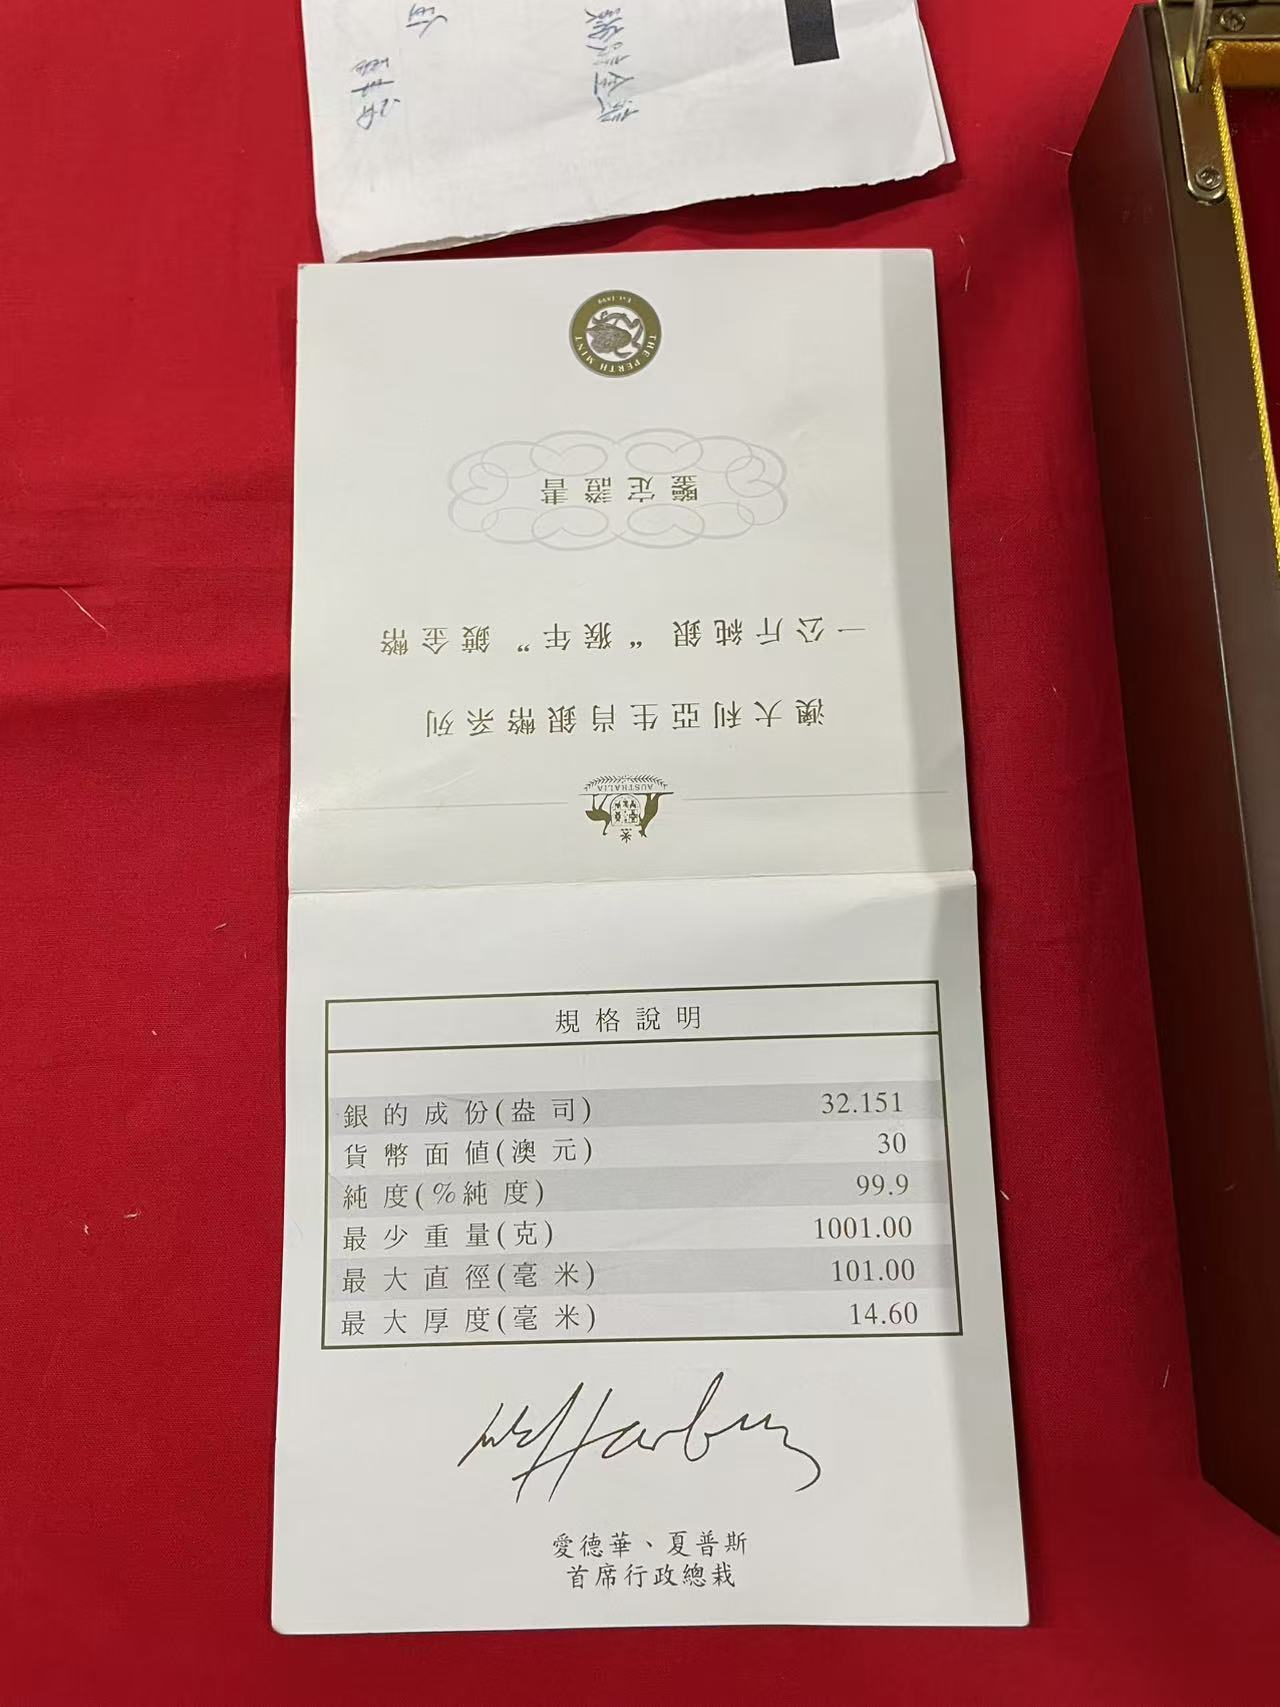 AUSTRALIA
澳大利亞生肖銀幣系列
一公斤純銀“猴年”鍍金幣
鑒定證書
THE PERTH MINT
Est. 1899
規格說明
銀的成份(盎司) 32.151
貨幣面值(澳元) 30
純度(%純度) 99.9
最少重量(克) 1001.00
最大直徑(毫米) 101.00
最大厚度(毫米) 14.60
愛德華、夏普斯
首席行政總栽